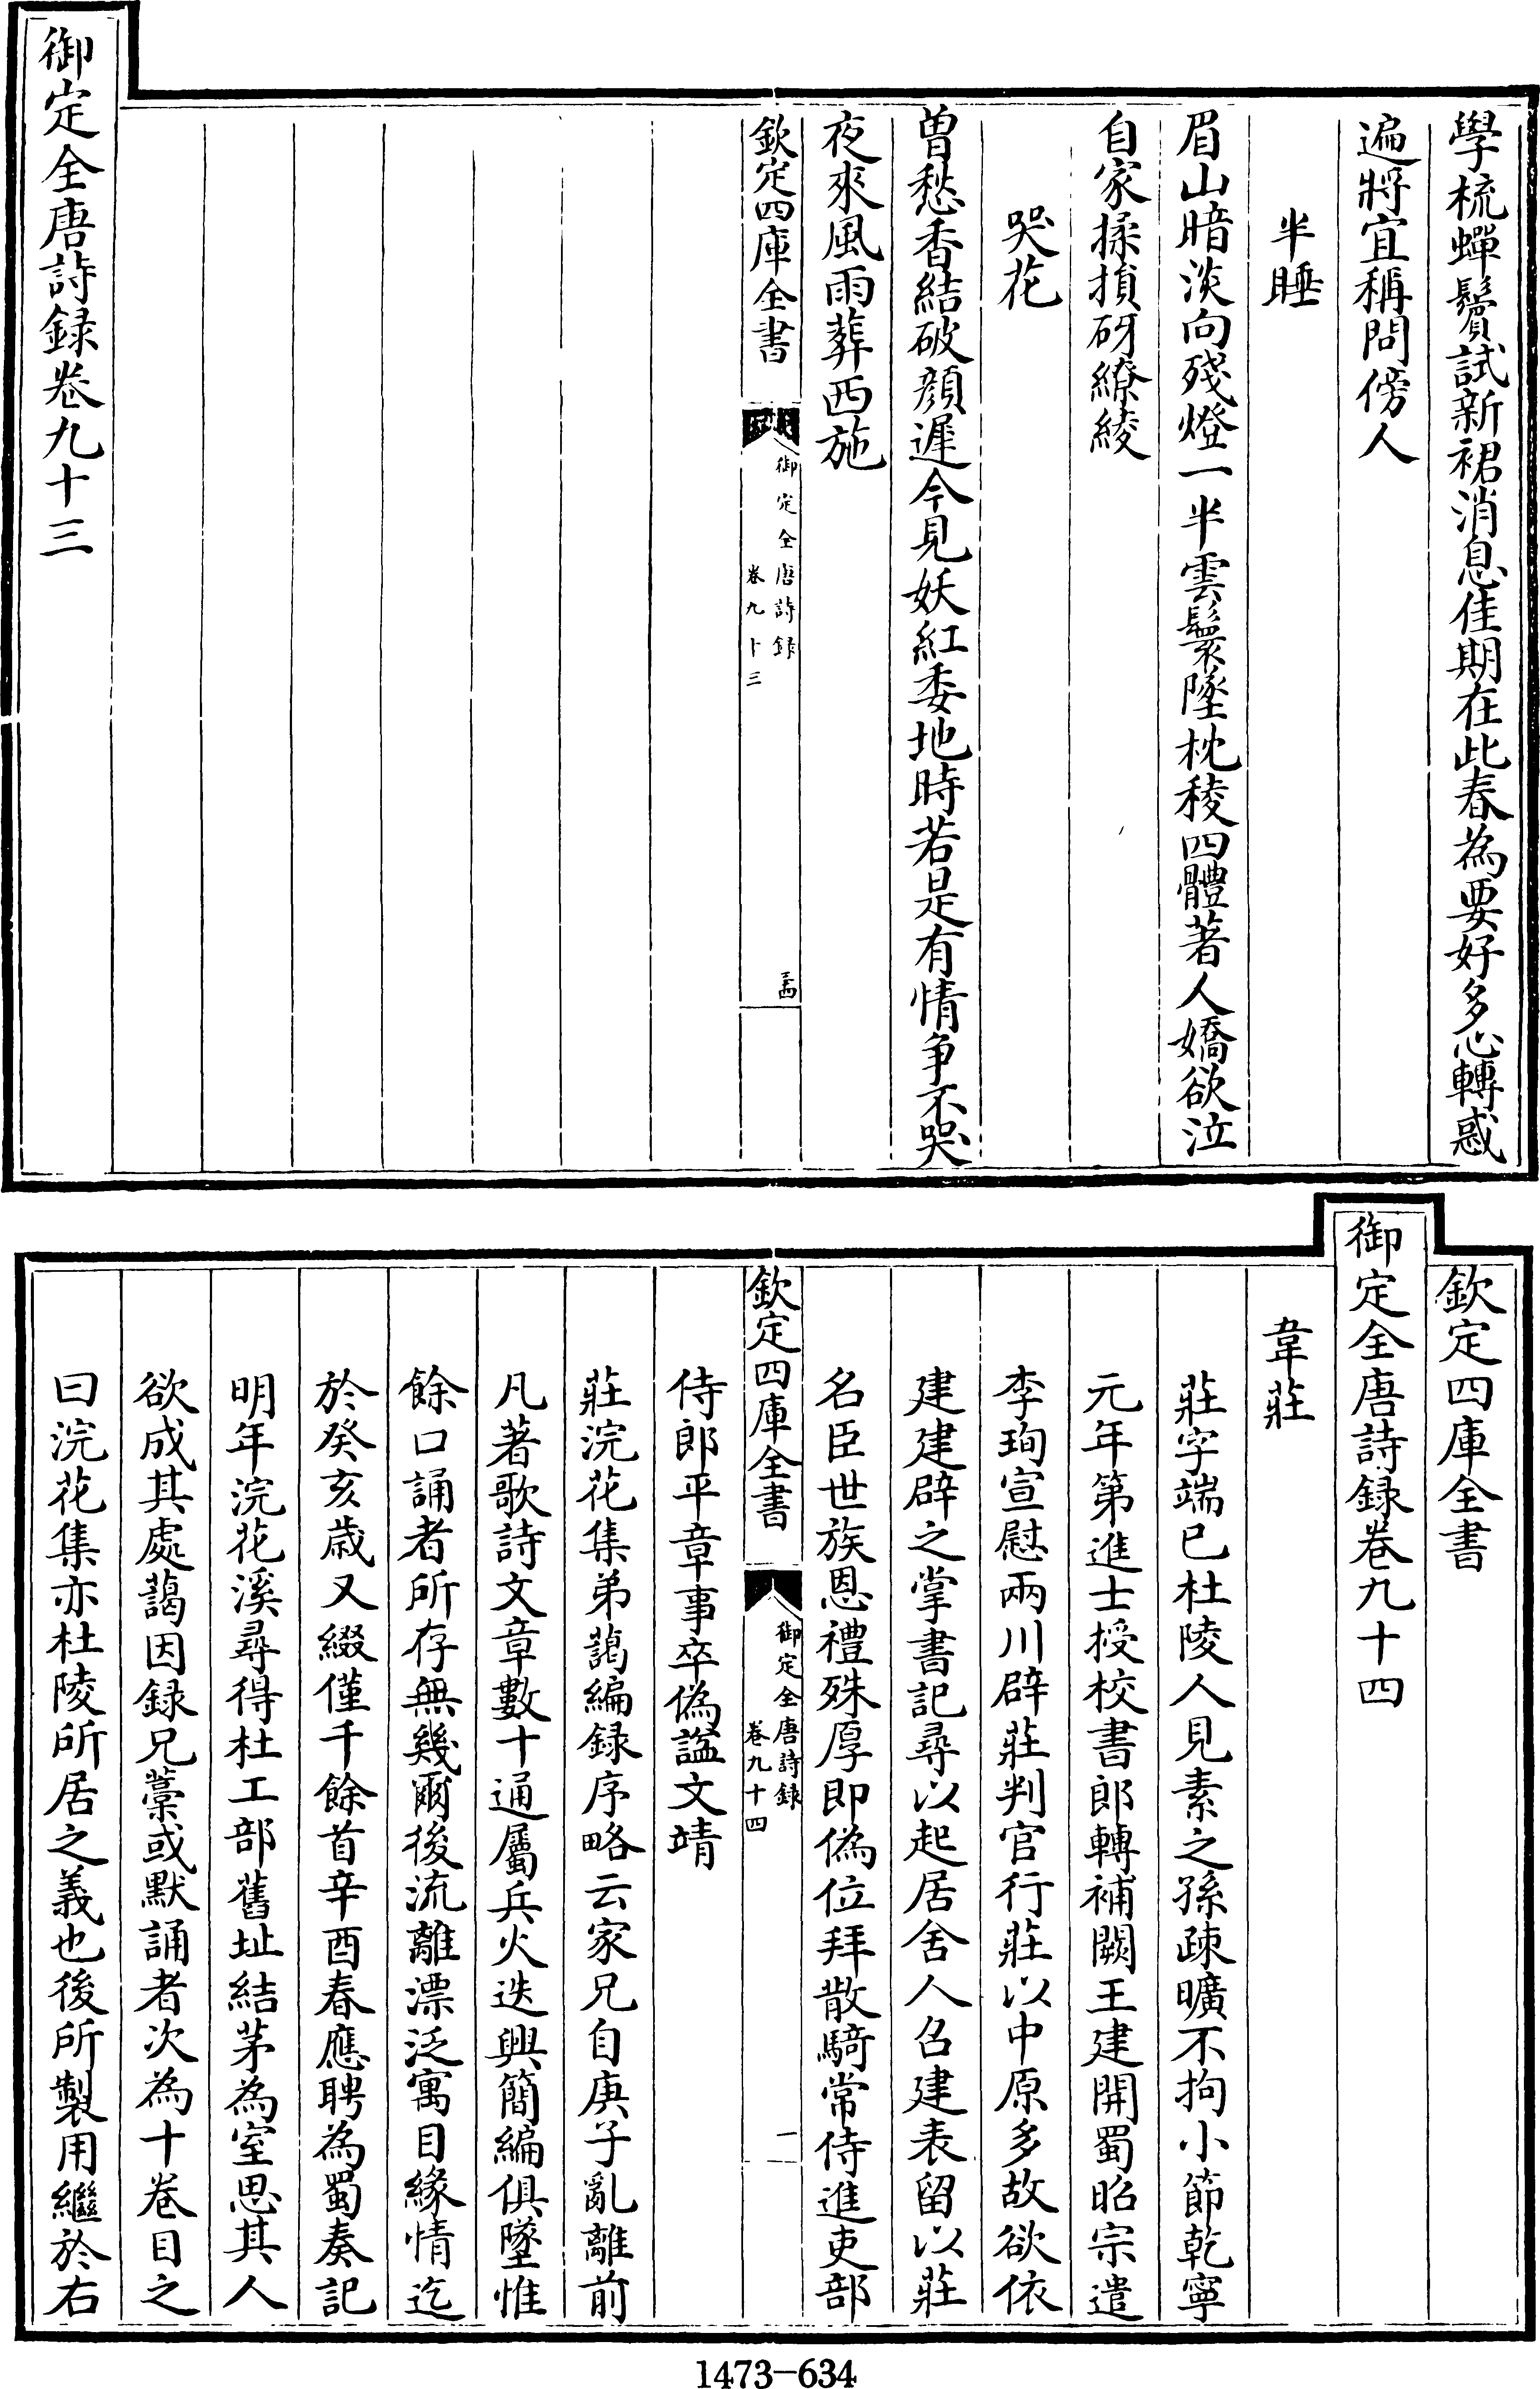 學梳蟬鬢試新裙消息佳期在此春為要好多心轉惑
遍將宜稱問傍人
半睡
眉山暗淡向殘燈一半雲鬟墜枕稜四體著人嬌欲泣
自家揉損砑繚綾
哭花
曽愁香結破顔遲今見妖紅委地時若是有情争不哭
夜來風雨葬西施
欽定四庫全書
御定全唐詩録
卷九十三
御定全唐詩録卷九十三
欽定四庫全書
御定全唐詩録卷九十四
韋莊
莊字端已杜陵人見素之孫疎曠不拘小節乾寧
元年第進士授校書郎轉補闕王建開蜀昭宗遣
李珣宣慰兩川辟莊判官行莊以中原多故欲依
建建辟之掌書記尋以起居舍人召建表留以莊
名臣世族恩禮殊厚即偽位拜散騎常侍進吏部
欽定四庫全書
御定全唐詩録
卷九十四
一
侍郎平章事卒偽諡文靖
莊浣花集弟藹編録序略云家兄自庚子亂離前
凡著歌詩文章數十通屬兵火迭興簡編俱墜惟
餘口誦者所存無幾爾後流離漂泛寓目緣情迄
於癸亥歲又綴僅千餘首辛酉春應聘為蜀奏記
明年浣花溪尋得杜工部舊址結茅為室思其人
欲成其處藹因録兄藁或默誦者次為十卷目之
曰浣花集亦杜陵所居之義也後所製用繼於右
1473-634